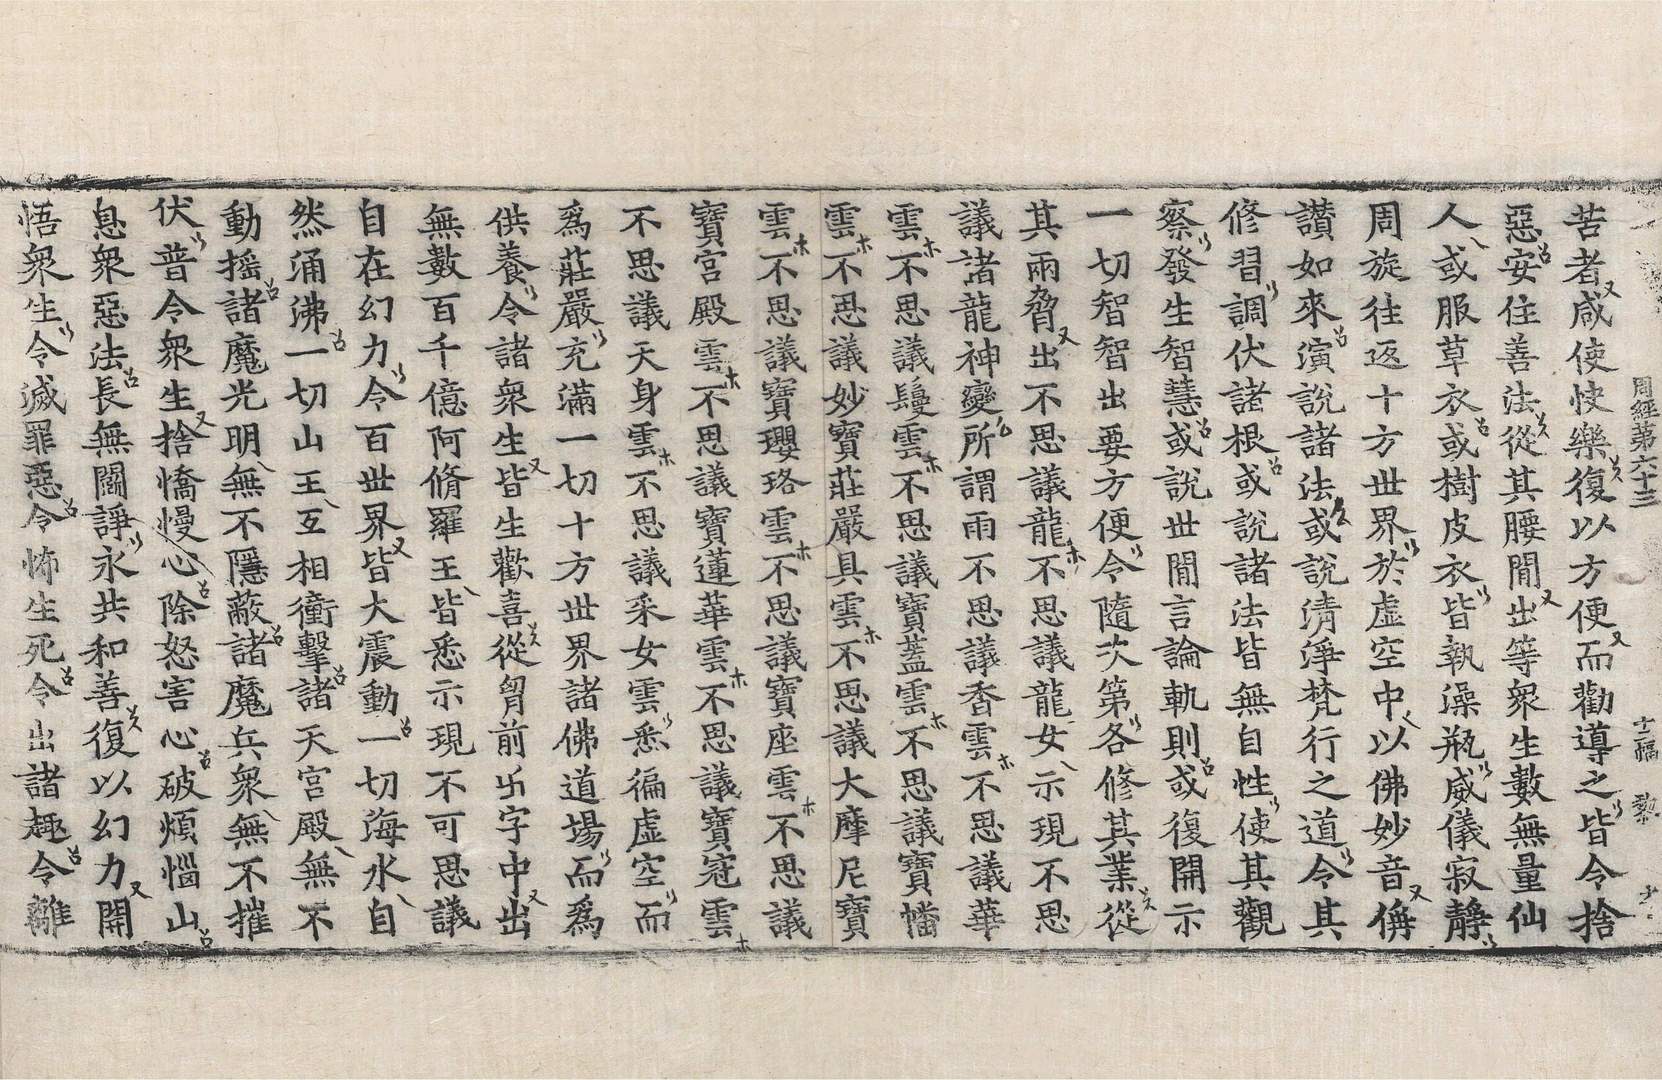 周經第六十三 十二幅 黎
苦者咸使快樂復以方便而勸導之皆令捨
惡安住善法從其腰間出等衆生數無量仙
人或服草衣或樹皮衣皆執澡瓶威儀寂靜
周旋往返十方世界於虛空中以佛妙音稱
讚如來演說諸法或說清淨梵行之道令其
修習調伏諸根或說諸法皆無自性使其觀
察發生智慧或說世閒言論軌則或復開示
一切智智出要方便令隨次第各修其業從
其兩脅出不思議龍不思議龍女示現不思
議諸龍神變所謂雨不思議香雲不思議華
雲不思議鬘雲不思議寶蓋雲不思議寶幡
雲不思議妙寶莊嚴具雲不思議大摩尼寶
雲不思議寶瓔珞雲不思議寶座雲不思議
寶宮殿雲不思議寶蓮華雲不思議寶冠雲
不思議天身雲不思議采女雲悉徧虛空而
爲莊嚴充滿一切十方世界諸佛道場而爲
供養令諸衆生皆生歡喜從胷前卐字中出
無數百千億阿脩羅王皆悉示現不可思議
自在幻力令百世界皆大震動一切海水自
然涌沸一切山王互相衝擊諸天宮殿無不
動搖諸魔光明無不隱蔽諸魔兵衆無不摧
伏普令衆生捨憍慢心除怒害心破煩惱山
息衆惡法長無鬭諍永共和善復以幻力開
悟衆生令滅罪惡令怖生死令出諸趣令離